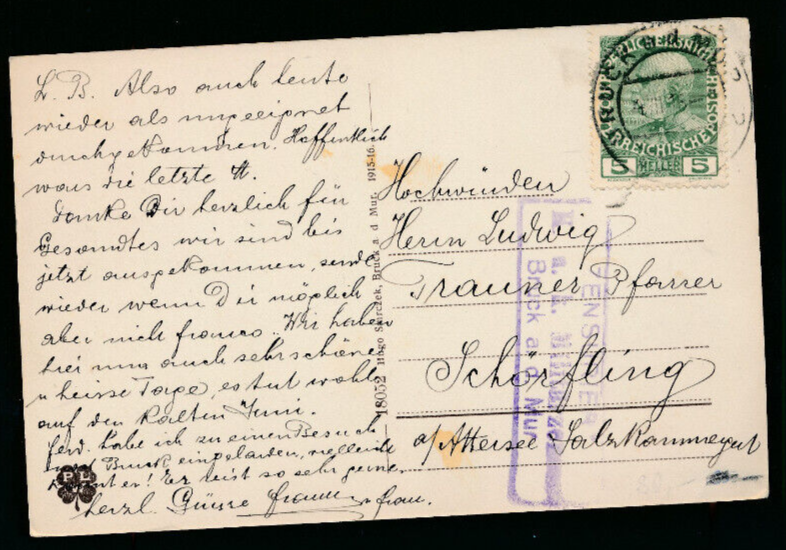 L. B. Also auch heute
wieder als ungeeignet
durchgekommen. Hoffentlich
war's die letzte
Danke Dir herzlich für
Gesandtes wir sind bis
jetzt ausgekommen, sende
wieder wenn Dir möglich
aber nicht franco. Wir haben
hier nun auch sehr schöne
u heisse Tage, es tut wohl
auf den kalten Juni.
Ferd. habe ich zu einen Besuch
nach Bruck eingeladen, vielleicht
kommt er! Er reist so sehr gerne.
herzl. Grüsse Franz u Frau.
PL
18052 Hugo Smrczek, Bruck a. d Mur. 1915-16.
BRUCK a d MUR
5 HELLER 5
Hochwürden
Herrn Ludwig
Trauner Pfarrer
Schörfling
a/Attersee Salzkammergut
K. u. k.
Bruck a. d. Mur